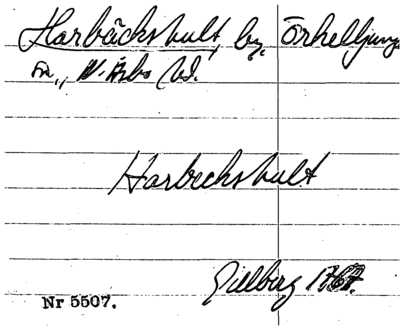 Harbäckshult, by, Örkelljunga
sn., N. Åsbo hd.
Harbeckshult
Gillberg 1767.
Nr 5507.